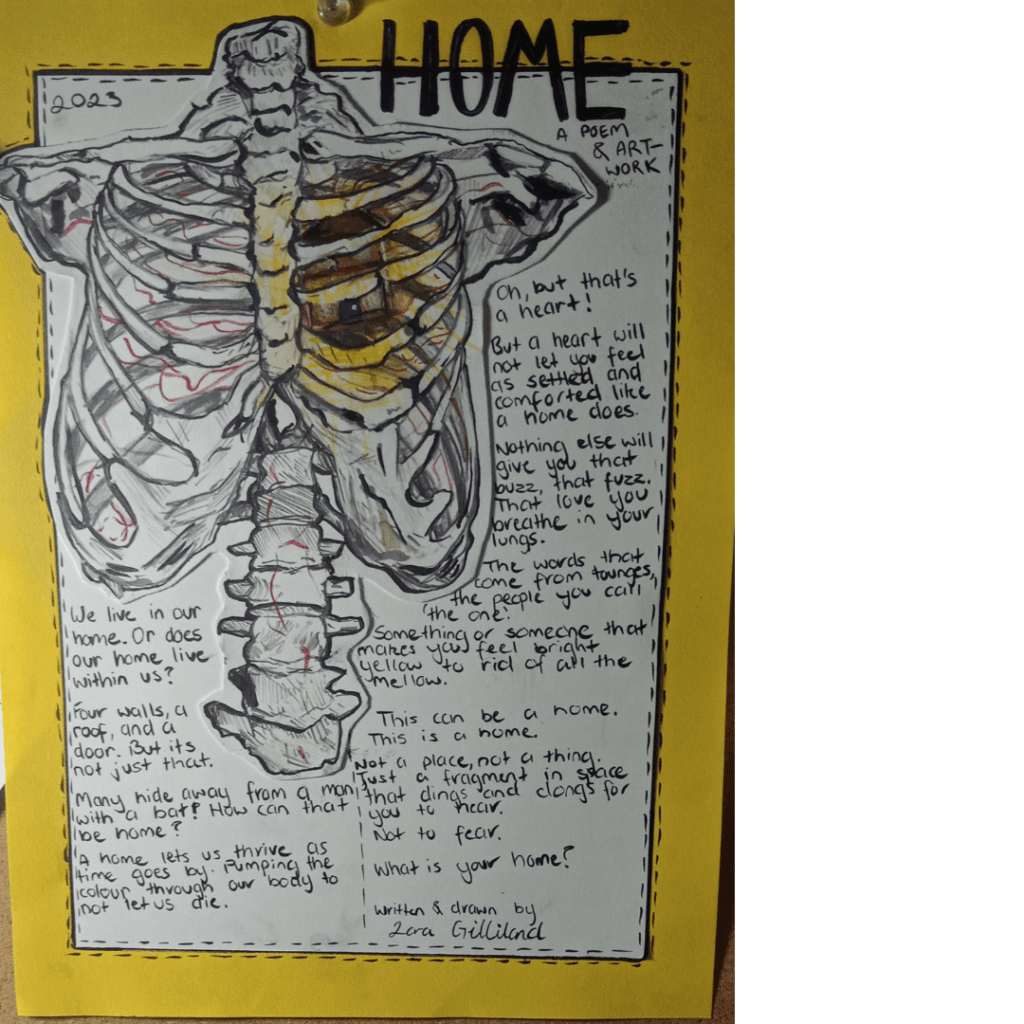 HOME
2023
A POEM
& ART-
WORK
We live in our
home. Or does
our home live
within us?
Four walls, a
roof, and a
door. But its
not just that.
Many hide away from a man
with a bat! How can that
be home?
A home lets us thrive as
time goes by. Pumping the
colour through our body to
not let us die.
Oh, but that's
a heart!
But a heart will
not let you feel
as settled and
comforted like
a home does.
Nothing else will
give you that
buzz, that fuzz.
That love you
breathe in your
lungs.
The words that
come from tounges,
the people you call
'the one'.
Something or someone that
makes you feel bright
yellow to rid of all the
mellow.
This can be a home.
This is a home.
Not a place, not a thing.
Just a fragment in space
that dings and dongs for
you to hear.
Not to fear.
What is your home?
written & drawn by
Zara Gilliland